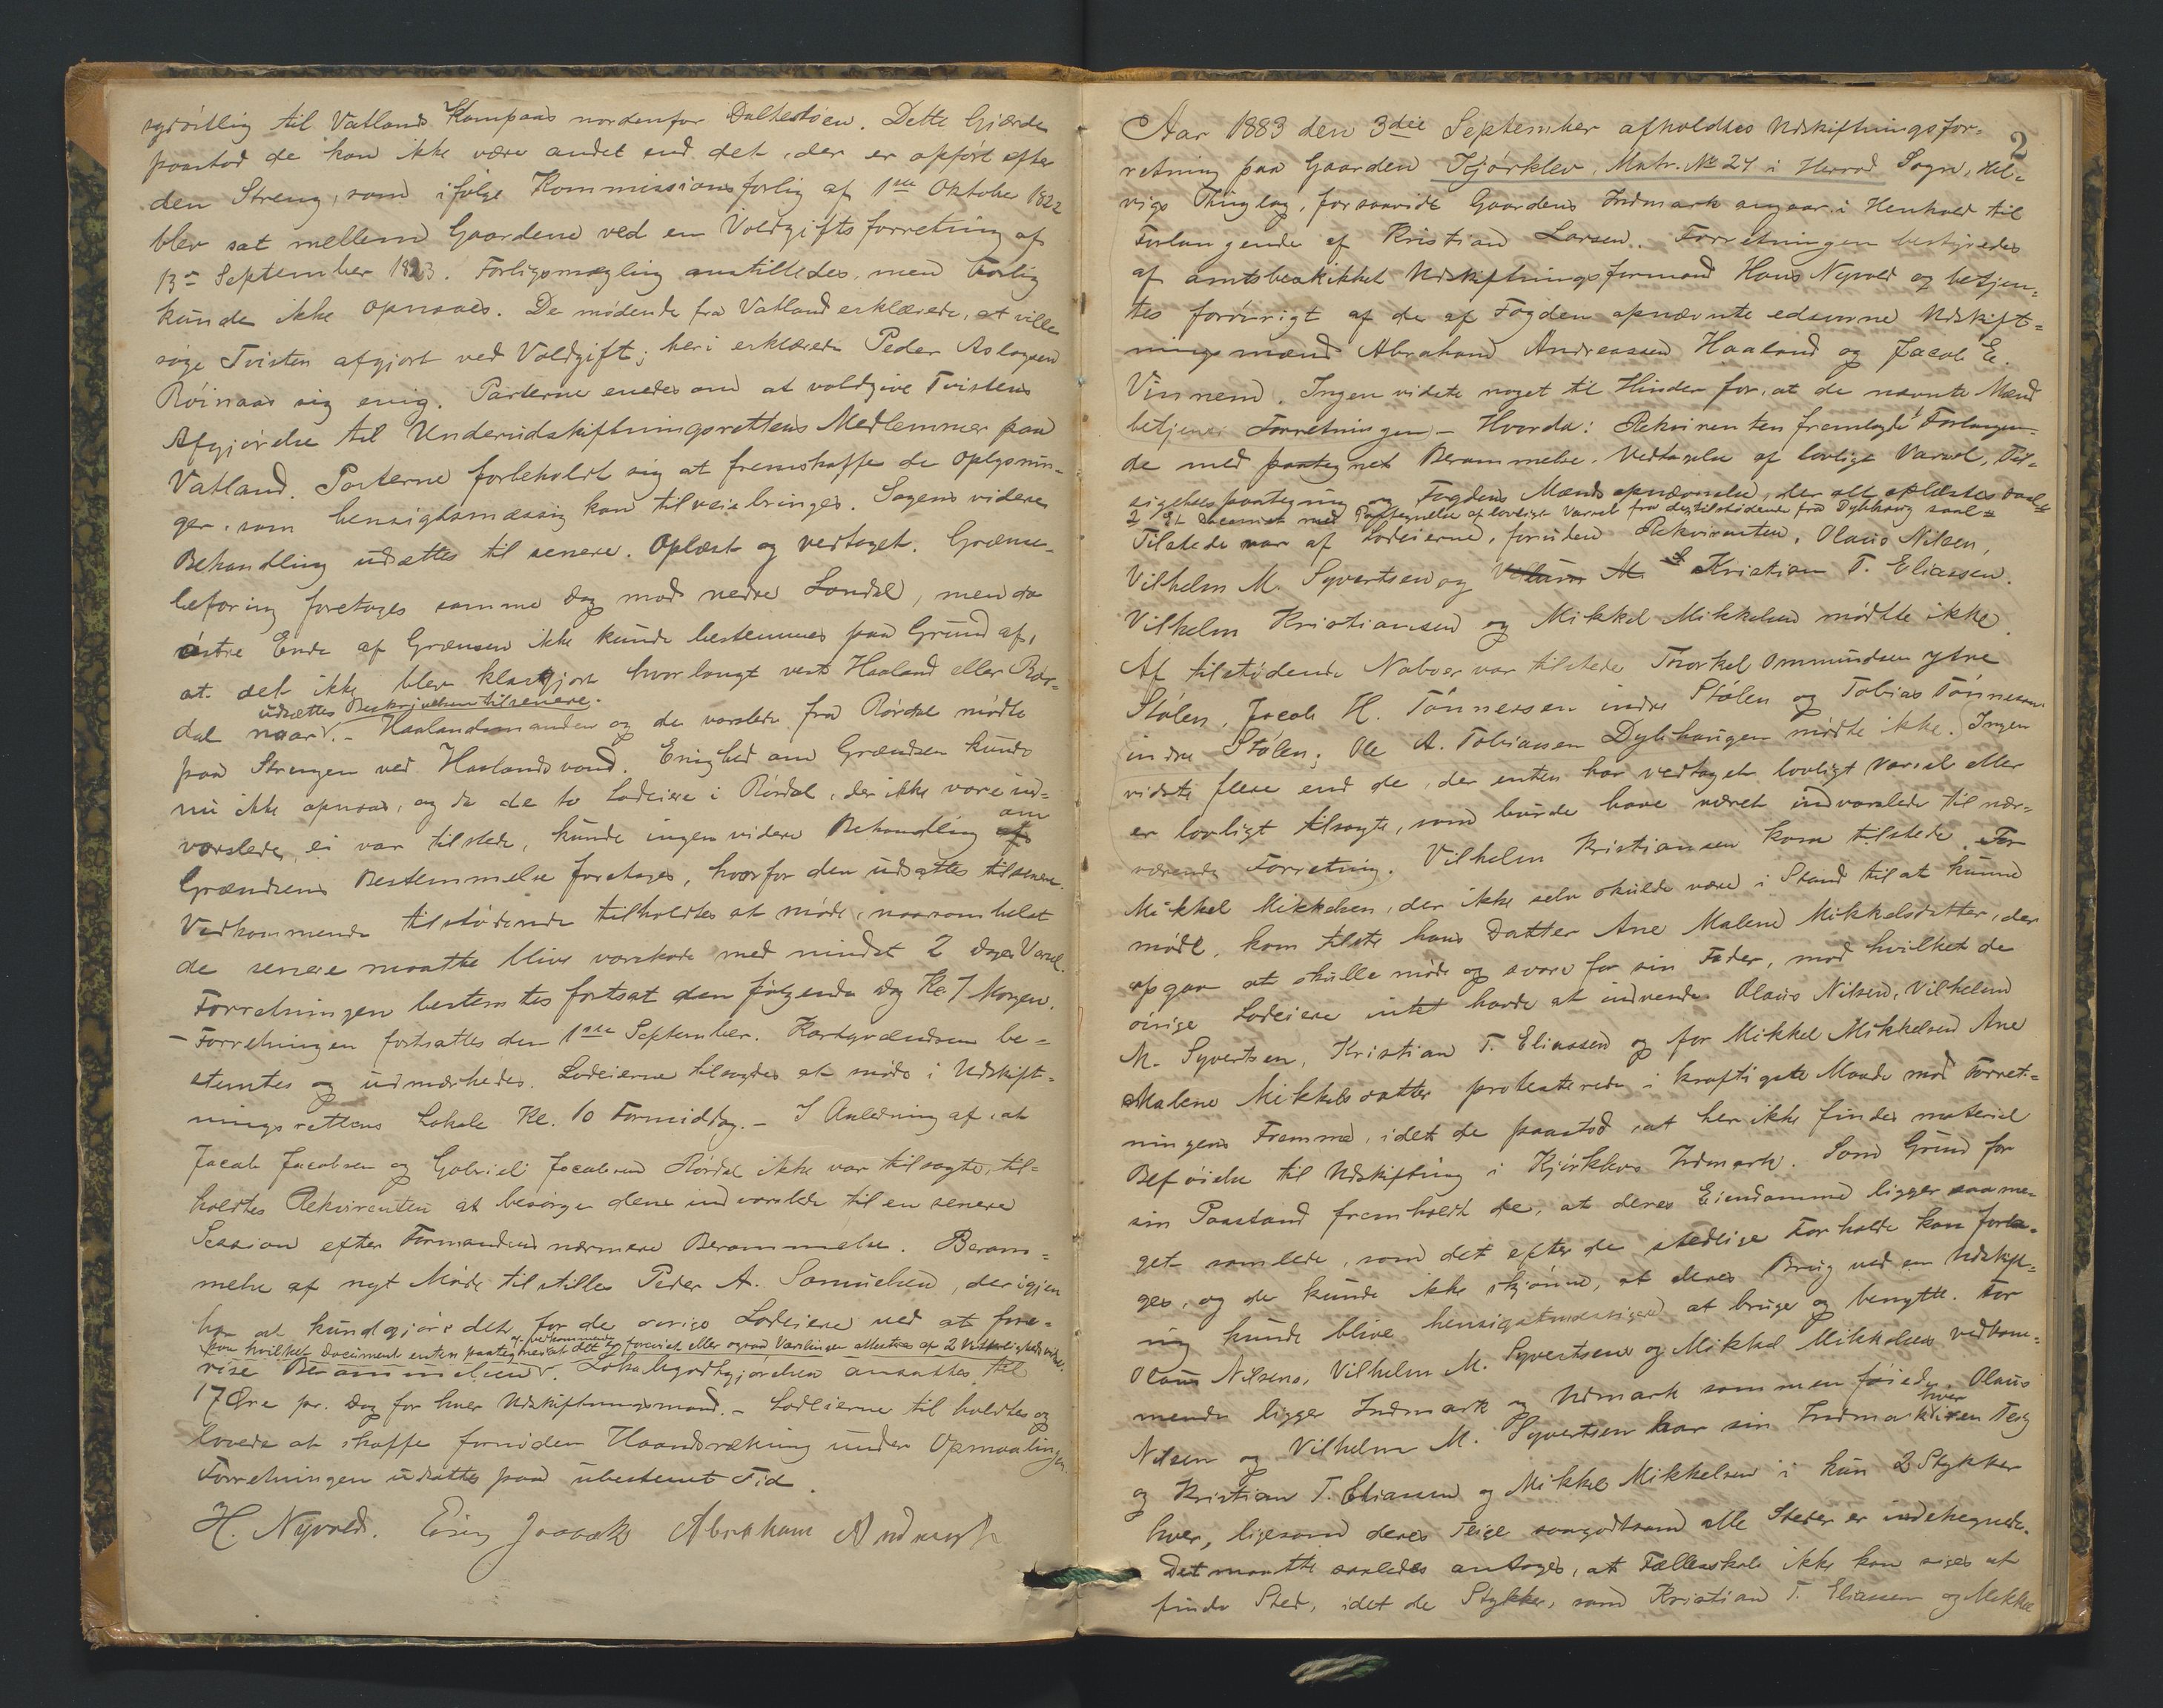 sydöstlig til Vatlands Kampaas nordenfor Dalhestöen. Dette Gjærde
paastod de kan ikke være andet end det, der er opfört efter
den Streng, som ifölge Kommissionsforlig af 1ste Oktober 1822
blev sat mellem Gaardene ved en Voldgiftsforretning af
13de September 1823. Forligsmægling anstilledes, men Forlig
kunde ikke opnaaes. De mödende fra Vatland erklærede, at ville
söge Tvisten afgjort ved Voldgift; heri erklærede Peder Aslagsen
Röinaas sig enig. Parterne enedes om at voldgive Tvistens
Afgjörelse til Underudskiftningsrettens Medlemmer paa
Vatland. Parterne forbeholdt sig at fremskaffe de Oplysnin-
ger, som hensigtsmæssig kan tilveiebringes. Sagens videre
Behandling udsættes til senere. Oplæst og vedtaget. Grænse-
beforing foretoges samme Dag mod nedre Londal, men da
östre Ende af Grænsen ikke kunde bestemmes paa Grund af,
at det ikke blev klargjort hvor langt vest Haaland eller Rör-
udsættes Beskrivelsen til senere.
dal naar √. - Haalandsmanden og de varslede fra Rördal mödte
paa Strengen ved Haalandsvand. Enighed om Grændsen kunde
nu ikke opnaaes, og da de to Lodeiere i Rördal, der ikke vare ind-
om
varslede, ei var tilstede, kunde ingen videre Behandling af
Grændsens Bestemmelse foretages, hvorfor den udsattes til senere.
Vedkommende tilstödende tilholdtes at möde, naarsomhelst
de senere maatte blive varskoede med mindst 2 Dages Varsel.
Forretningen bestemtes fortsat den fölgende Dag Kl. 7 Morgen.
- Forretningen fortsattes den 1ste September. Kartgrændsen be-
stemtes og udmærkedes. Lodeierne tilsagdes at möde i Udskift-
ningsrettens Lokale Kl. 10 Formiddag. - I Anledning af, at
Jacob Jacobsen og Gabriel Jacobsen Rördal ikke var tilsagte, til-
holdtes Rekvirenten at besörge dem indvarslede til en senere
Session efter Formandens nærmere Berammelse. Beram-
melse af nyt Möde tilstilles Peder A. Samuelsen, der igjen
har at kundgjöre det for de övrige Lodeiere ved at fore-
paa hvilket Document enten paategnes at det er vedkommende forevist eller ogsaa Varslingen attesteres af 2
vise Berammelsen √. Lokalegodtgjörelsen ansattes til
17 Öre pr. Dag for hver Udskiftningsmand. - Lodeierne tilholdtes og
lovede at skaffe fornöden Haandsrækning under Opmaalingen.
Forretningen udsattes paa ubestemt Tid.
H. Nyvold. Abraham
2
Aar 1883 den 3die September afholdtes Udskiftningsfor-
retning paa Gaarden Kjörklev, Matr. No 24 i Herred Sogn, Hel-
vigs Thinglag, forsaavidt Gaardens Indmark angaar i Henhold til
Forlangende af Kristian Larsen. Forretningen bestyredes
af amtsbeskikket Udskiftningsformand Hans Nyvold og betjen-
tes forövrigt af de af Fogden opnævnte edsvorne Udskift-
ningsmænd Abraham Andreassen Haaland og Jacob E.
Vinnem. Ingen vidste noget til Hinder for, at de nævnte Mænd
betjener Forretningen. - Hvorda: Rekvirenten fremlagde Forlangen-
de med paategnet Berammelse, Vedtagelse af lovligt Varsel, Til-
sigelsespaategning og Fogdens Mændsopnævnelse, der alt oplæstes
2. Et Document med Paategnelse af lovligt Varsel fra de tilstödende fra Dybhaug
Tilstede var af Lodeierne, foruden Rekvirenten, Olaus Nilsen,
Vilhelm M. Syvertsen og Vilhelm M. Kristian T. Eliassen.
Vilhelm Kristiansen og Mikkel Mikkelsen mödte ikke.
Af tilstödende Naboer var tilstede Thorkel Ommundsen ytre
Stölen, Jacob H. Tönnessen indre Stölen og Tobias Tönnessen
indre Stölen; Ole A. Tobiassen Dybhaugen mödte ikke. Ingen
vidste flere end de, der enten har vedtaget lovligt Varsel eller
er lovligt tilsagte, som burde have været indvarslede til nær-
værende Forretning. Vilhelm Kristiansen kom tilstede. For
Mikkel Mikkelsen, der ikke selv skulde være i Stand til at kunne
möde, kom tilste hans Datter Ane Malene Mikkelsdatter, der
opgav at skulle möde og svare for sin Fader, mod hvilket de
övrige Lodeiere intet havde at indvende. Olaus Nilsen, Vilhelm
M. Syvertsen, Kristian T. Eliassen og for Mikkel Mikkelsen Ane
Malene Mikkelsdatter protesterede i kraftigste Maade mod Forret-
ningens Fremme, idet de paastod, at her ikke findes materiel
Beföielse til Udskiftning i Kjörklevs Indmark. Som Grund for
sin Paastand fremholdt de, at deres Eiendomme ligger saa me-
get samlede, som det efter de stedlige Forholde kan forlan-
ges, og de kunde ikke skjönne, at deres Brug ved en Udskift-
ning kunde blive hensigtsmæssigere at bruge og benytte. For
Olaus Nilsens, Vilhelm M. Syvertsens og Mikkel Mikkelsens vedkom-
mende ligger Indmark og Udmark sammenföiede. Olaus
hver
Nilsen og Vilhelm M. Syvertsen har sin Indmark i en Teig
og Kristian T. Eliassen og Mikkel Mikkelsen i kun 2 Stykker
hver, ligesom deres Teige saagodtsom alle Steder er indehegnede.
Det maatte saaledes antages, at Fællesskab ikke kan siges at
finde Sted, idet de Stykker, som Kristian T. Eliassen og Mikkel